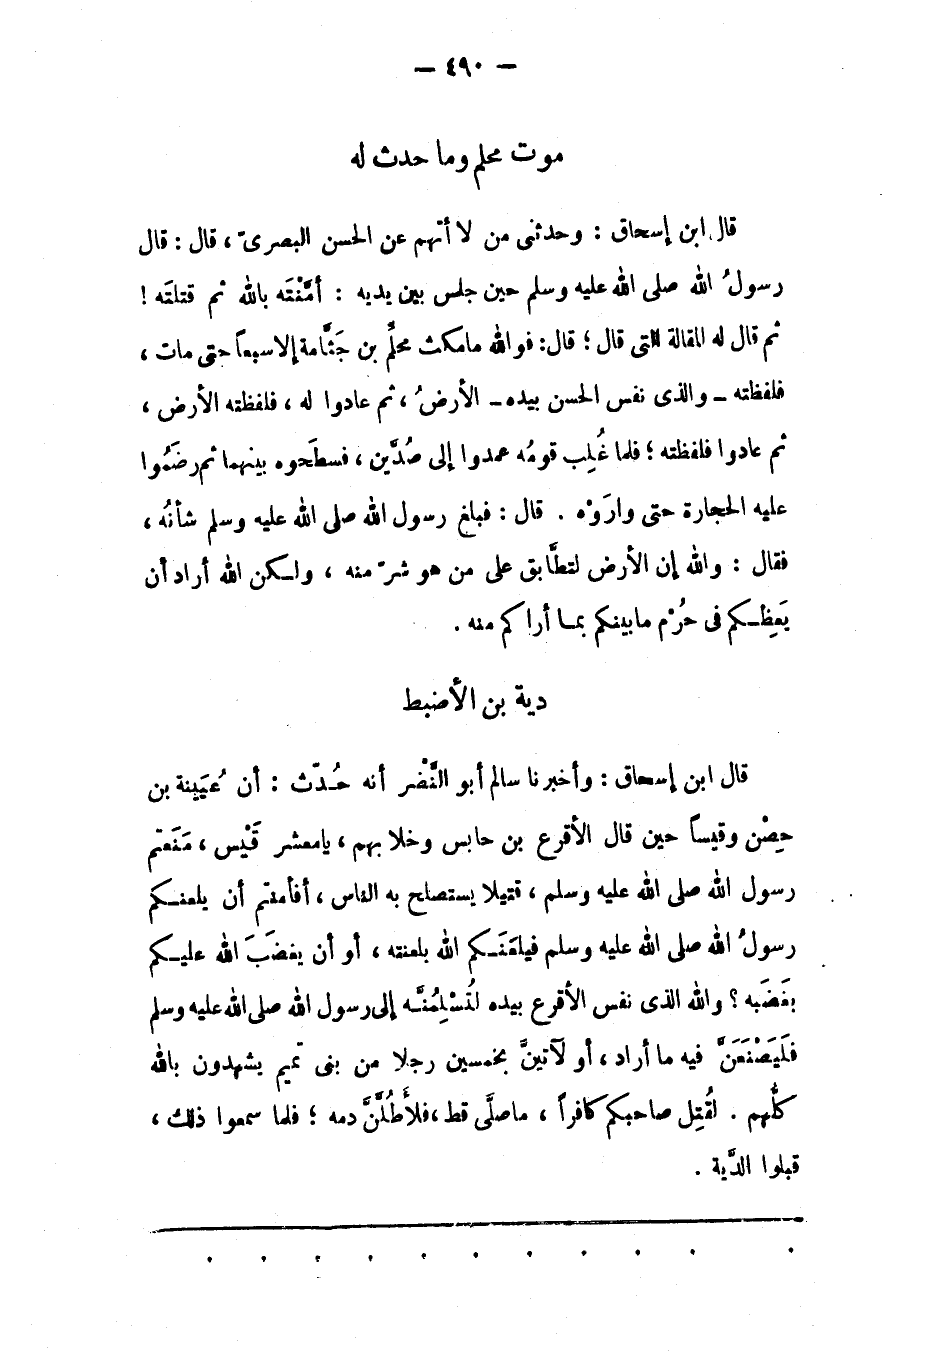 — ٤٩٠ —
موت محلم وما حدث له
قال ابن إسحاق : وحدثنى من لا أتهم عن الحسن البصرىّ ، قال : قال
رسولُ الله صلى الله عليه وسلم حين جلس بين يديه : أمَّنْتَه بالله ثم قتلتَه !
ثم قال له المقالة التى قال ؛ قال: فوالله مامكث محلِّم بن جَثَّامة إلا سبعاً حتى مات ،
فلفظته ــ والذى نفس الحسن بيده ــ الأرضُ ، ثم عادوا له ، فلفظته الأرض ،
ثم عادوا فلفظته ؛ فلما غُلِب قومُه عمدوا إلى صُدَّين ، فسطَحوه بينهما ثم رضَمُوا
عليه الحجارة حتى وارَوْه . قال : فبلغ رسول الله صلى الله عليه وسلم شأنُه ،
فقال : والله إن الأرض لتطَّابق على من هو شرّ منه ، ولـكن الله أراد أن
يَعِظـكم فى حُرْم مابينكم بمـا أراكم منه .
دية بن الأضبط
قال ابن إسحاق : وأخبرنا سالم أبو النَّضْر أنه حُـدّث : أن عُيَيِنة بن
حِصْن وقيساً حين قال الأقرع بن حابس وخلا بهم ، يامعشر قَيْس ، مَنَعتم
رسول الله صلى الله عليه وسلم ، قتيلا يستصلح به الناس ، أفأمنتم أن يلعنـكم
رسولُ الله صلى الله عليه وسلم فيلعَنَـكم الله بلعنته ، أو أن يغضَبَ الله عليـكم
بغَضَبه ؟ والله الذى نفس الأقرع بيده لتُسْلِمُنَّـه إلى رسول الله صلى الله عليه وسلم
فلَيَصْنَعَنَّ فيه ما أراد ، أو لآتينَّ بخمسين رجلا من بنى تميم يشهدون بالله
كلُّهم . لقُتِل صاحبكم كافراً ، ماصلَّى قط ،فلأَطُلَّنَّ دمه ؛ فلما سمعوا ذلك ،
قبلوا الدَّية .
. . . . . . . . . . .